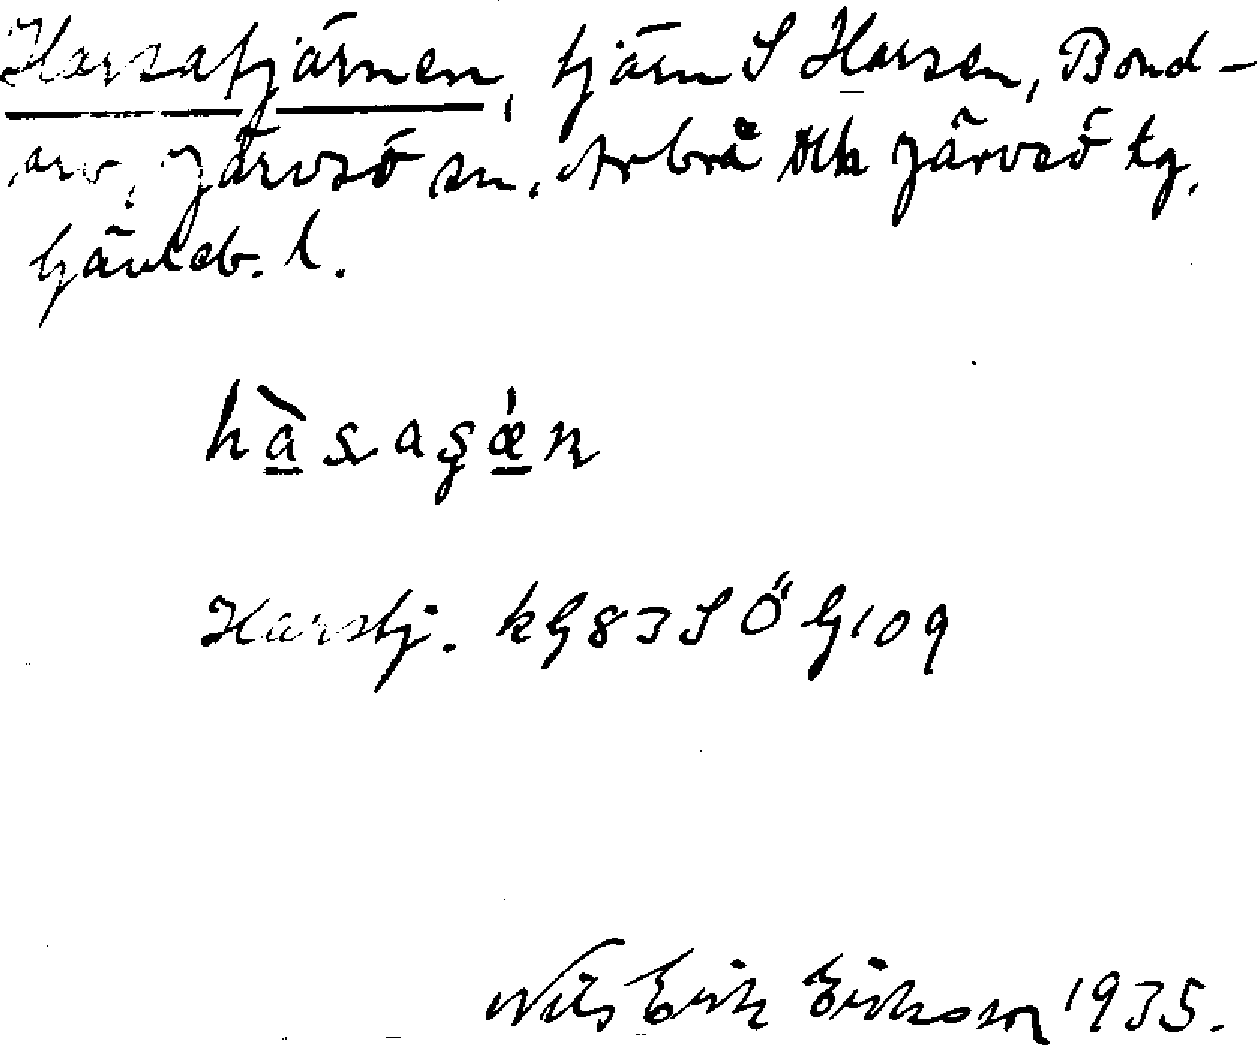 Harsatjärnen, tjärn S Harsen, Bond-
arv, Järvsö sn. Arbrå och Järvsö tg,
Gävleb. l.
hàsaşǽn
Harstj. kG83SÖG109
Nils Erik Eriksson 1935.